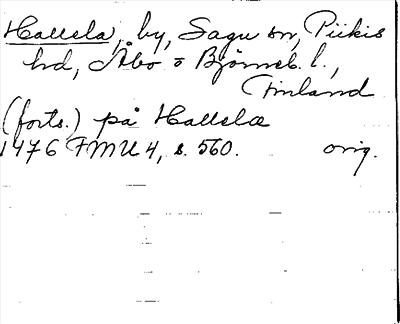 Hallela, by, Sagu sn, Piikis
hd, Åbo o Björneb. l.,
Finland
(forts.) på Hallela
1476 FMU 4, s. 560. orig.